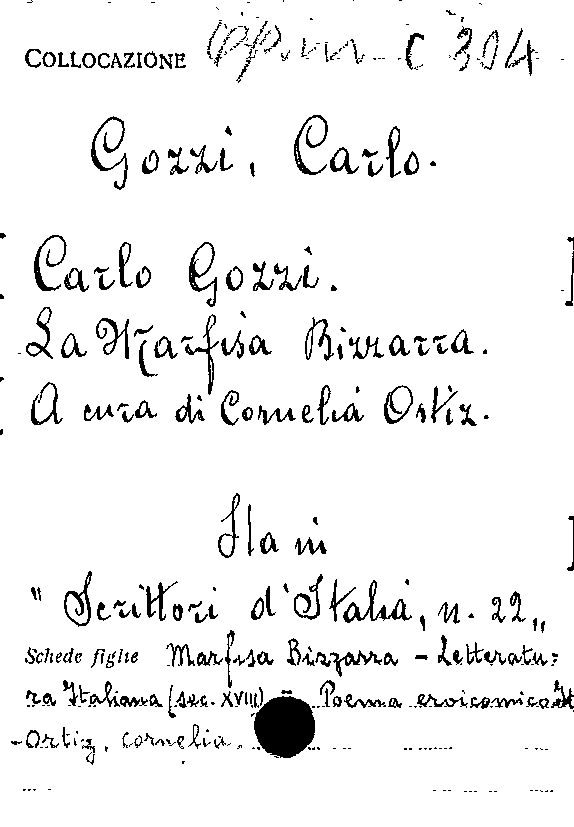 COLLOCAZIONE C 304
Gozzi, Carlo.
Carlo Gozzi.
La Marfisa Bizzarra.
A cura di Cornelia Ortiz.
Sta in
"Scrittori d'Italia, n. 22„
Schede figlie Marfisa Bizzarra - Letteratu=
ra Italiana (sec. XVIII) = Poema eroicomico
-Ortiz, cornelia.